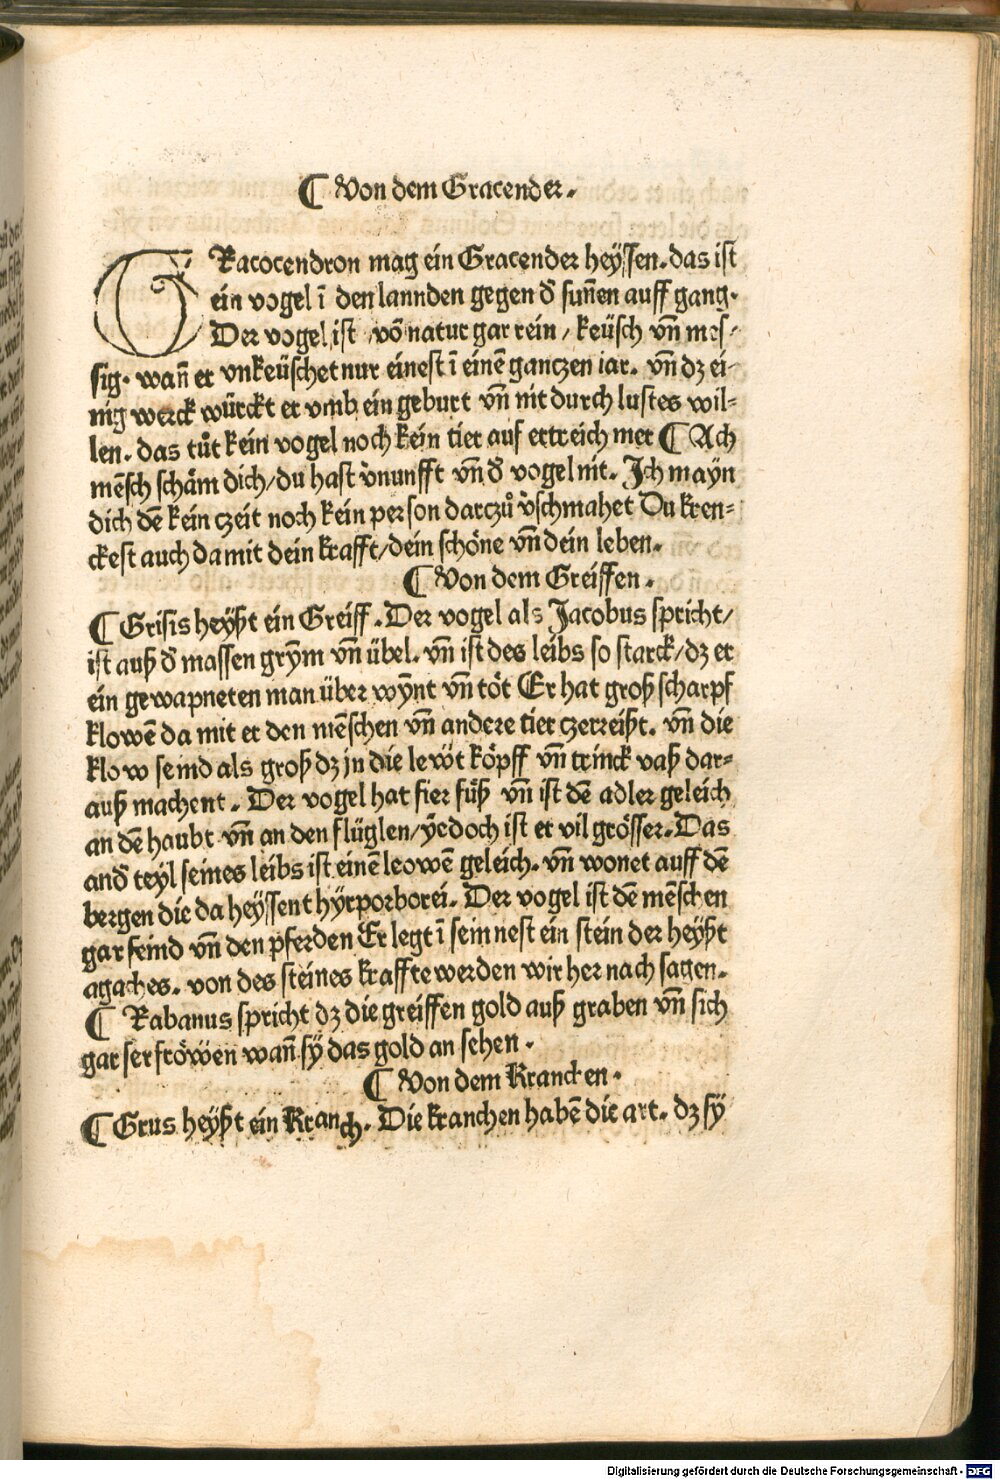 ¶ Von dem Gracender.
GRacocendron mag ein Gracender heyssen. das ist
ein vogel ī den lannden gegen d̕ sun̄en auff gang.
Der vogel ist vō natur gar rein / keüsch vn̄ mes-
sig. wan̄ er vnkeüschet nur einest ī einē ganczen iar. vn̄ dz ei-
nig werck würckt er vmb ein geburt vn̄ nit durch lustes wil-
len. das tůt kein vogel noch kein tier auf ertreich mer ¶ Ach
mēsch schäm dich/ du hast v̕nunfft vn̄ d̕ vogel nit. Ich mayn
dich dē kein czeit noch kein person darczů v̕schmahet Du kren-
ckest auch damit dein krafft/ dein schöne vn̄ dein leben.
¶ Von dem Greiffen.
¶ Grifis heyßt ein Greiff. Der vogel als Jacobus spricht/
ist auß d̕ massen grȳm vn̄ übel. vn̄ ist des leibs so starck/ dz er
ein gewapneten man über wȳnt vn̄ töt Er hat groß scharpf
klowē da mit er den mēschen vn̄ andere tier czerreißt. vn̄ die
klow seind als groß dz jn die lewt köpff vn̄ trinck vaß dar-
auß machent. Der vogel hat fier füß vn̄ ist dē adler geleich
an dē haubt vn̄ an den flüglen/ yedoch ist er vil grösser. Das
and̕ teyl seines leibs ist einē leowē geleich. vn̄ wonet auff dē
bergen die da heyssent hyrporborei. Der vogel ist dē mēschen
gar feind vn̄ den pferden Er legt ī sein nest ein stein der heyßt
agaches. von des steines kraffte werden wir her nach sagen.
¶ Rabanus spricht dz die greiffen gold auß graben vn̄ sich
gar ser fröwen wan̄ sy das gold an sehen.
¶ Von dem Kranchen.
¶ Grus heyßt ein Kranch. Die kranchen habē die art. dz sy
Digitalisierung gefördert durch die Deutsche Forschungsgemeinschaft - DFG